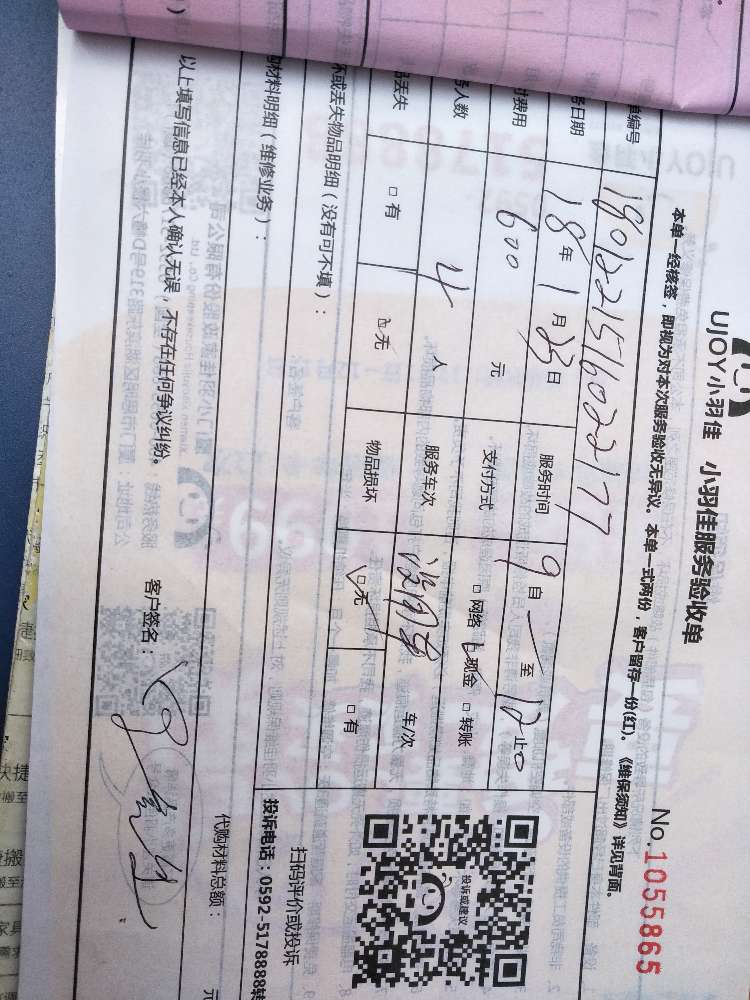 UJOY小羽佳 小羽佳服务验收单
No.1055865
本单一经核签，即视为对本次服务验收无异议。本单一式两份，客户留存一份(红)。《维保须知》详见背面。
单编号 1801221516022177
务日期 18年1月23日 服务时间 9自 至12止
付费用 600 元 支付方式 □网络 ☑现金 □转账
务人数 4 人 服务车次 没用车 车/次
品丢失 □有 ☑无 物品损坏 ☑无 □有
坏或丢失物品明细（没有可不填）：
购材料明细（维修业务）：
代购材料总额： 元
以上填写信息已经本人确认无误，不存在任何争议纠纷。 客户签名：
投诉或建议
扫码评价或投诉
投诉电话：0592-5178888转